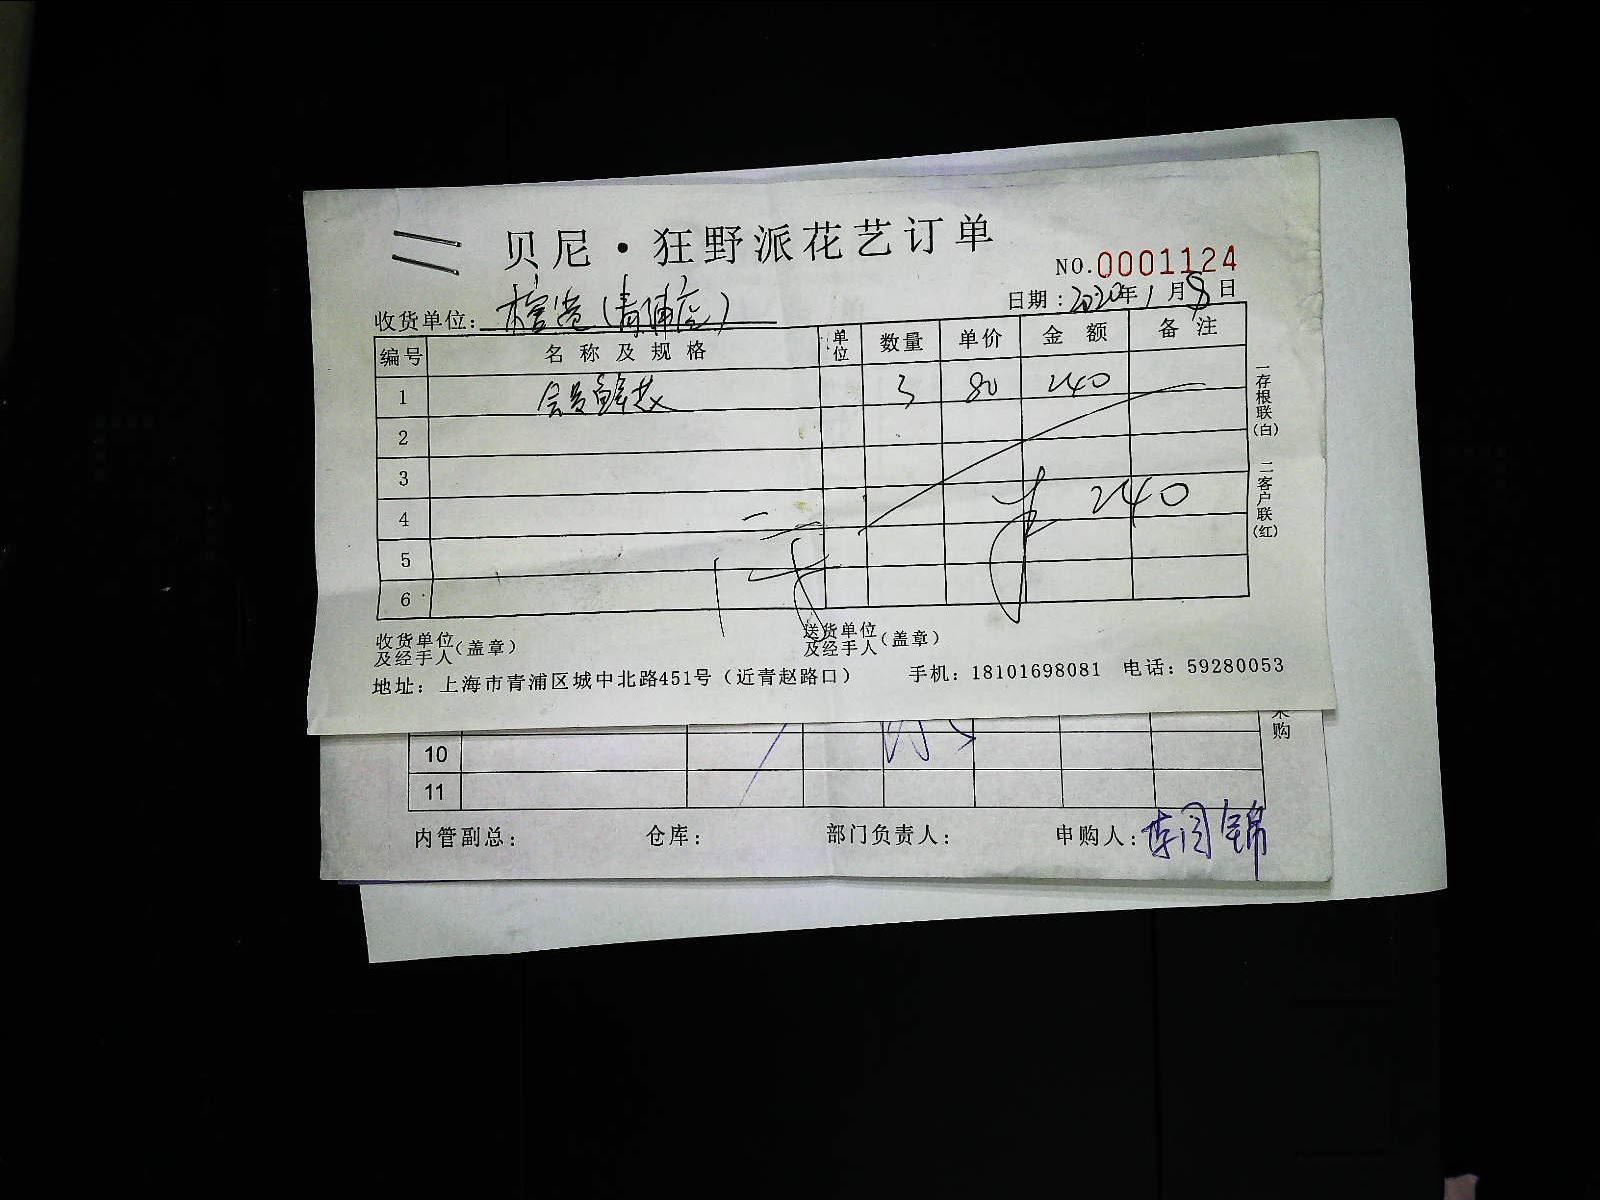 贝尼·狂野派花艺订单
NO.0001124
日期:2020年1月8日
收货单位: (青浦店)
编号 名称及规格 单位 数量 单价 金额 备注
1 会员鲜花 3 80 240
2
3
4 240
5
6
一存根联(白) 二客户联(红)
收货单位及经手人(盖章) 送货单位及经手人(盖章)
地址:上海市青浦区城中北路451号(近青赵路口) 手机:18101698081 电话:59280053
采购
10
11
内管副总: 仓库: 部门负责人: 申购人: